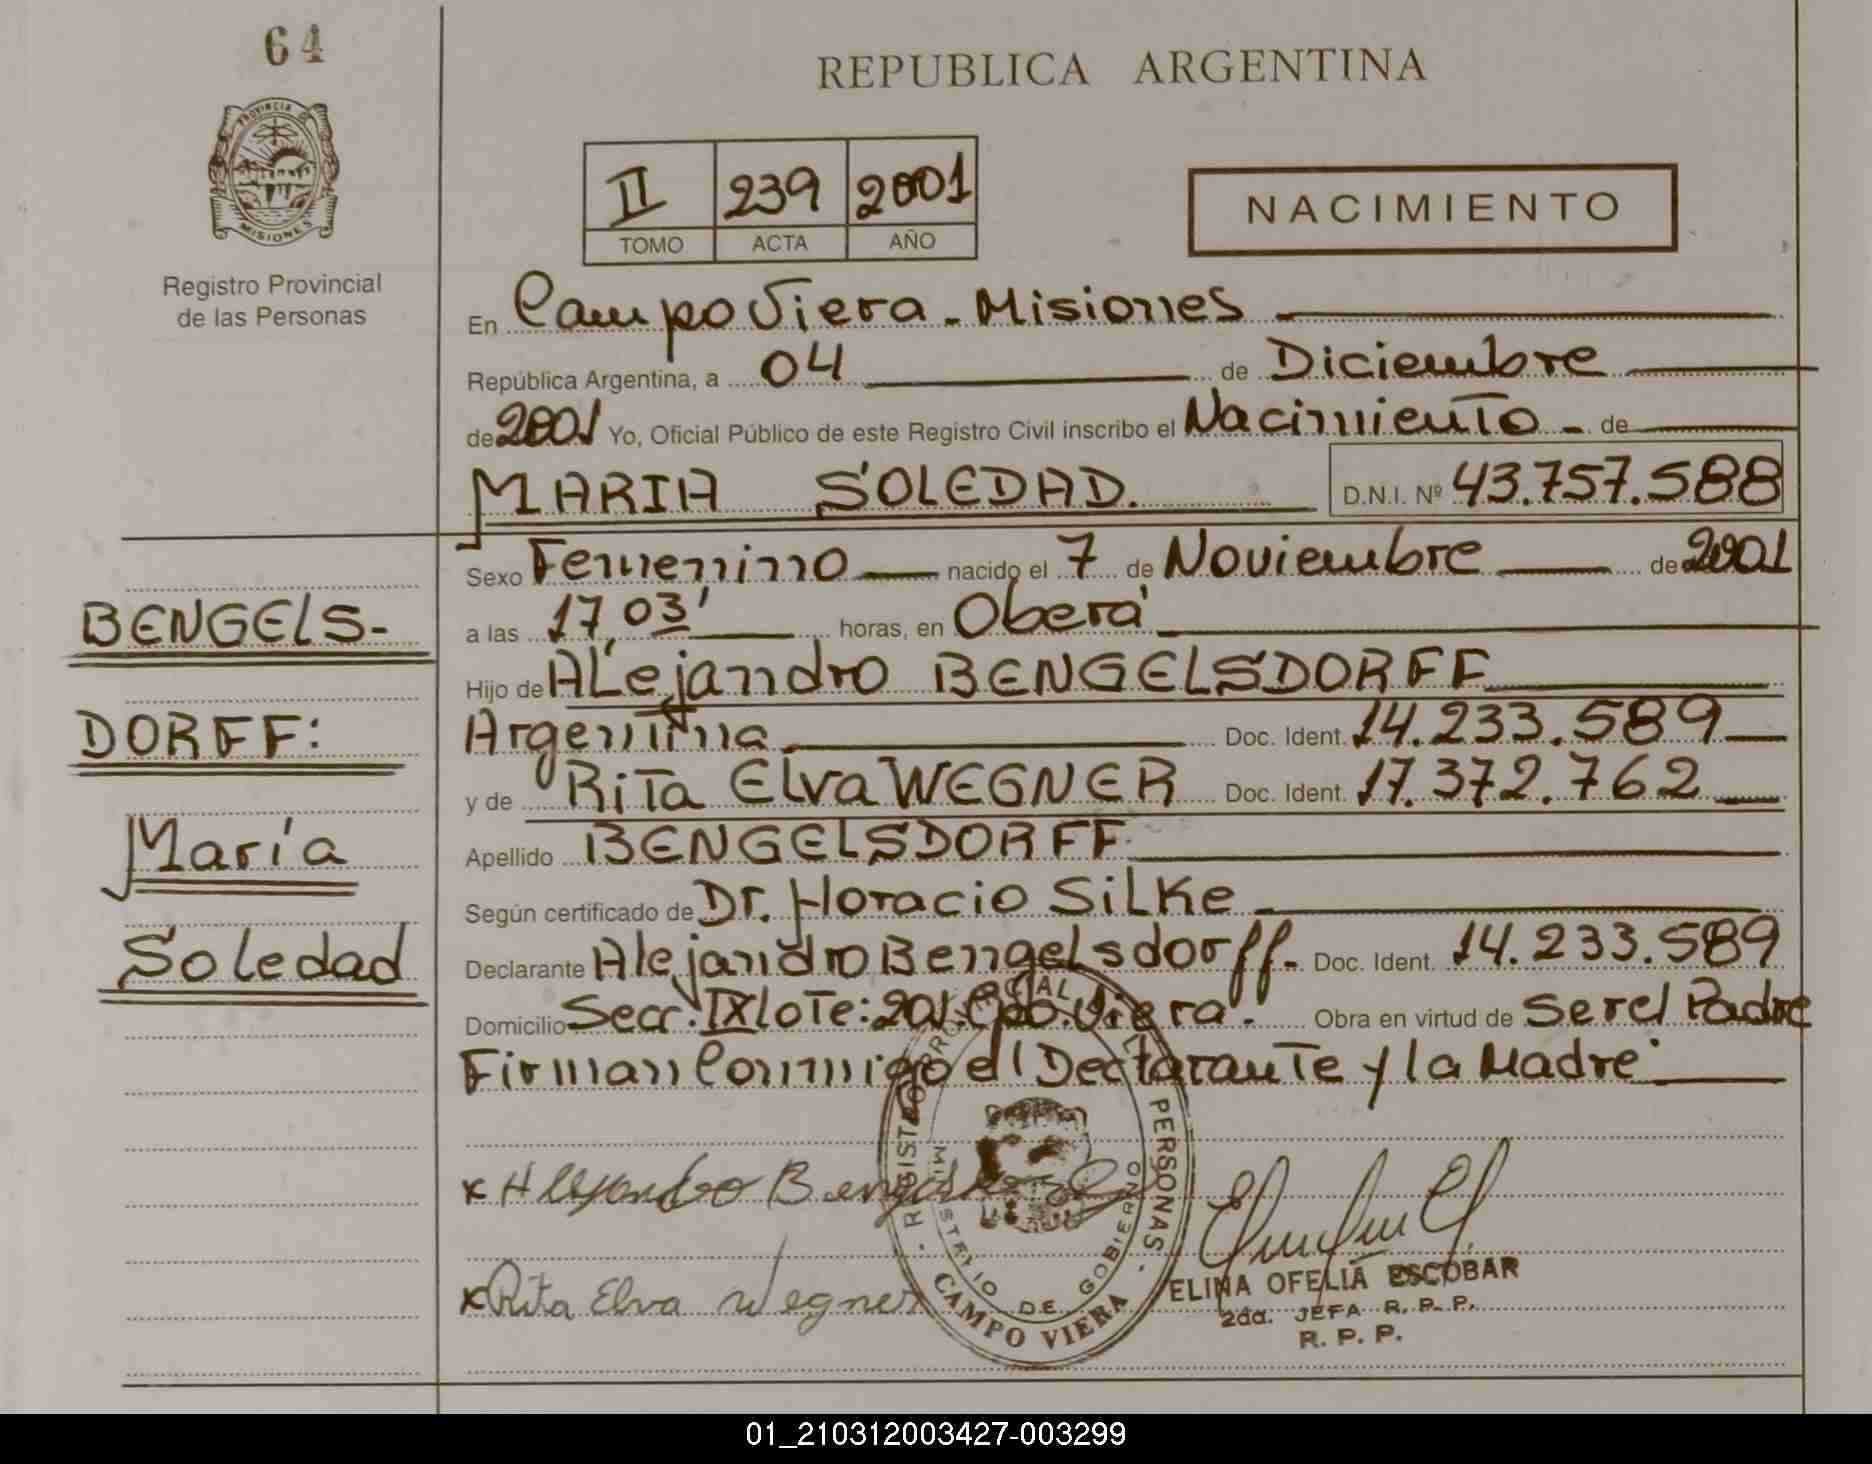 64
PROVINCIA DE
MISIONES
Registro Provincial
de las Personas
REPUBLICA ARGENTINA
II 239 2001
TOMO ACTA AÑO
NACIMIENTO
En Campo Viera - Misiones
República Argentina, a 04 de Diciembre
de 2001 Yo, Oficial Público de este Registro Civil inscribo el Nacimiento - de
MARIA SOLEDAD. D.N.I. Nº 43.757.588
Sexo Femenino nacido el 7 de Noviembre de 2001
a las 17,03' horas, en Oberá
Hijo de Alejandro BENGELSDORFF
Argentina Doc. Ident. 14.233.589
y de Rita Elva WEGNER Doc. Ident. 17.372.762
Apellido BENGELSDORFF
Según certificado de Dr. Horacio Silke
Declarante Alejandro Bengelsdorff.- Doc. Ident. 14.233.589
Domicilio Secc. IX lote: 201. Cpo. Viera. Obra en virtud de Ser el Padre
Firman Conmigo el Declarante y la Madre
BENGELS-
DORFF:
María
Soledad
x Alejandro Bengelsdorff
x Rita Elva Wegner
REGISTRO PROVINCIAL DE LAS PERSONAS
MINISTERIO DE GOBIERNO
CAMPO VIERA
ELINA OFELIA ESCOBAR
2da. JEFA R. P. P.
R. P. P.
01_210312003427-003299